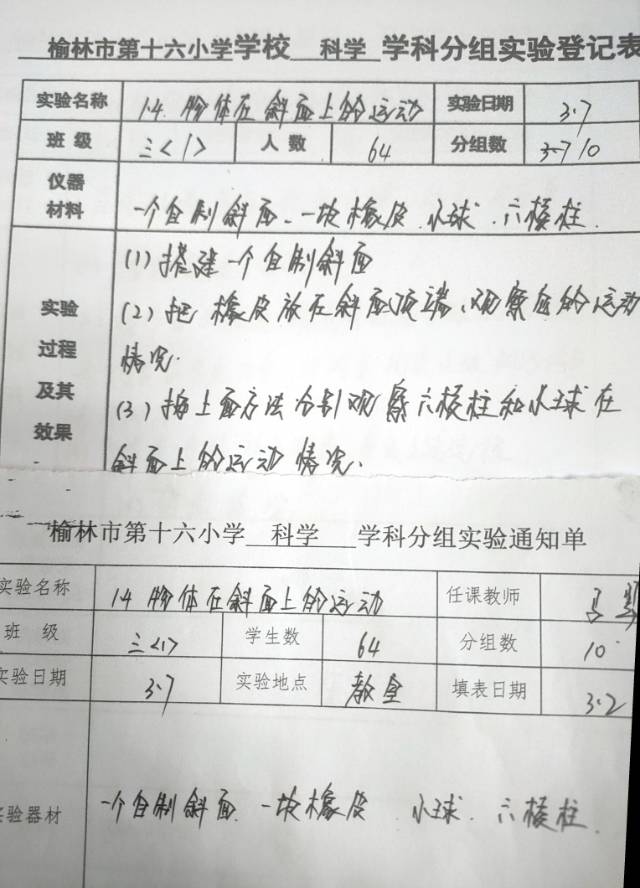 榆林市第十六小学学校 科学 学科分组实验登记表
实验名称 1.4 物体在斜面上的运动 实验日期 3.7
班级 三<1> 人数 64 分组数 3.7 10
仪器材料 一个自制斜面、一块橡皮、小球、六棱柱.
实验过程及其效果
(1)搭建一个自制斜面
(2)把橡皮放在斜面顶端、观察它的运动
情况.
(3)按上面方法分别观察六棱柱和小球在
斜面上的运动情况.
榆林市第十六小学 科学 学科分组实验通知单
实验名称 1.4 物体在斜面上的运动 任课教师
班级 三<1> 学生数 64 分组数 10
实验日期 3.7 实验地点 教室 填表日期 3.2
实验器材 一个自制斜面、一块橡皮、小球、六棱柱.